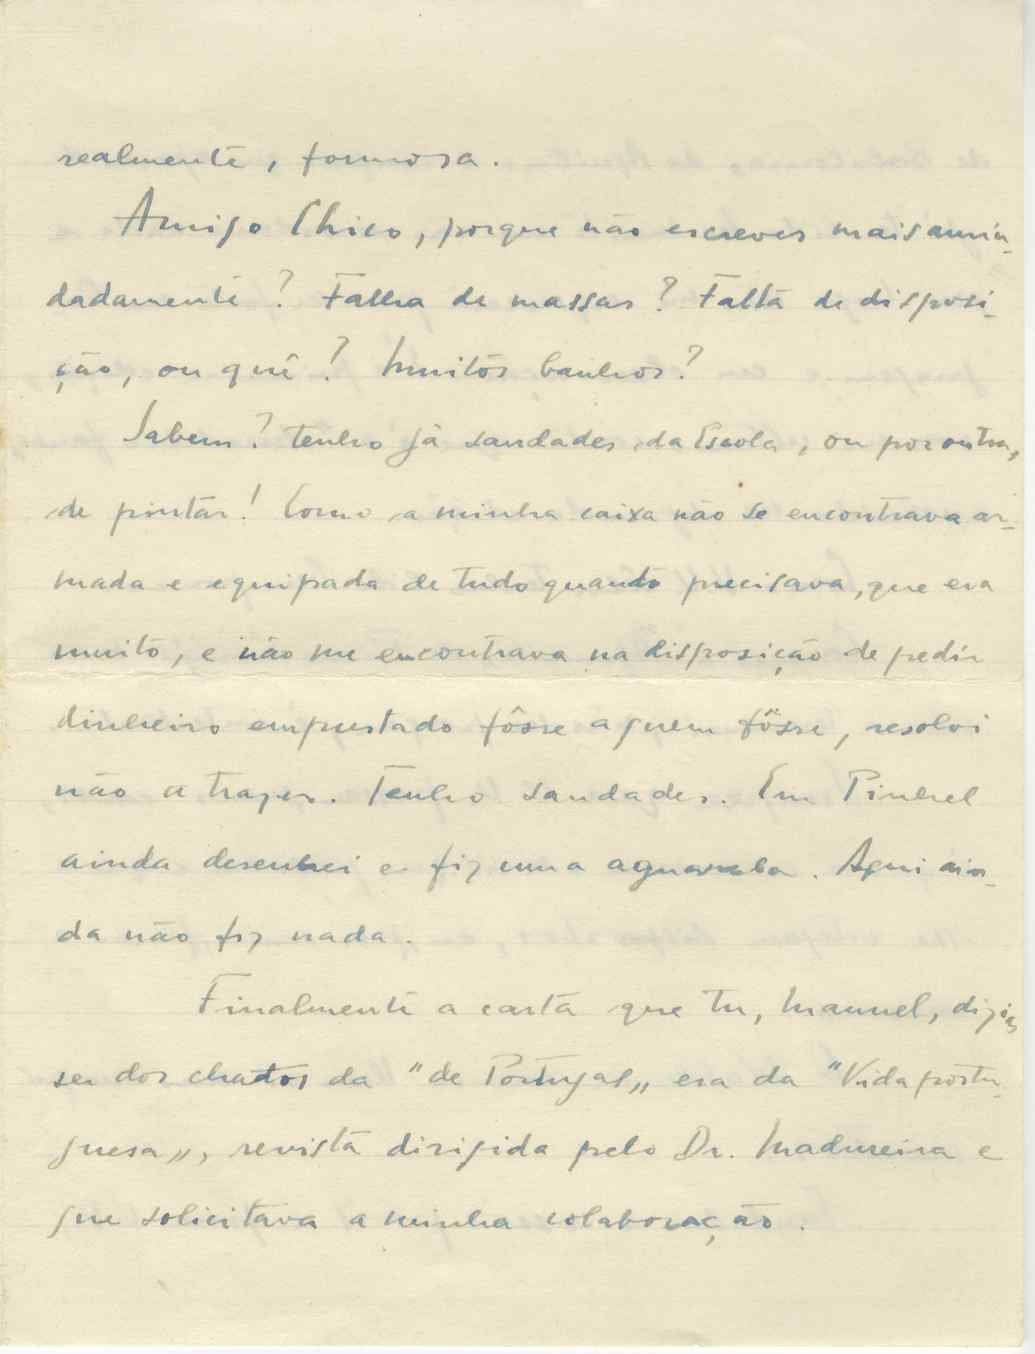 realmente, formosa.
Amigo Chico, porque não escreves mais amiu-
dadamente? Falha de massas? Falta de disposi-
ção, ou quê? Muitos banhos?
Sabem? tenho já saudades da Escola, ou por outra,
de pintar! Como a minha caixa não se encontrava ar-
mada e equipada de tudo quanto precisava, que era
muito, e não me encontrava na disposição de pedir
dinheiro emprestado fôsse a quem fôsse, resolvi
não a trazer. Tenho saudades. Em Pinhel
ainda desenhei e fiz uma aguarela. Aqui ain-
da não fiz nada.
Finalmente a carta que tu, Manuel, dizias
ser dos chatos da "de Portugal„ era da "Vida portu-
guesa„, revista dirigida pelo Dr. Madureira e
que solicitava a minha colaboração.